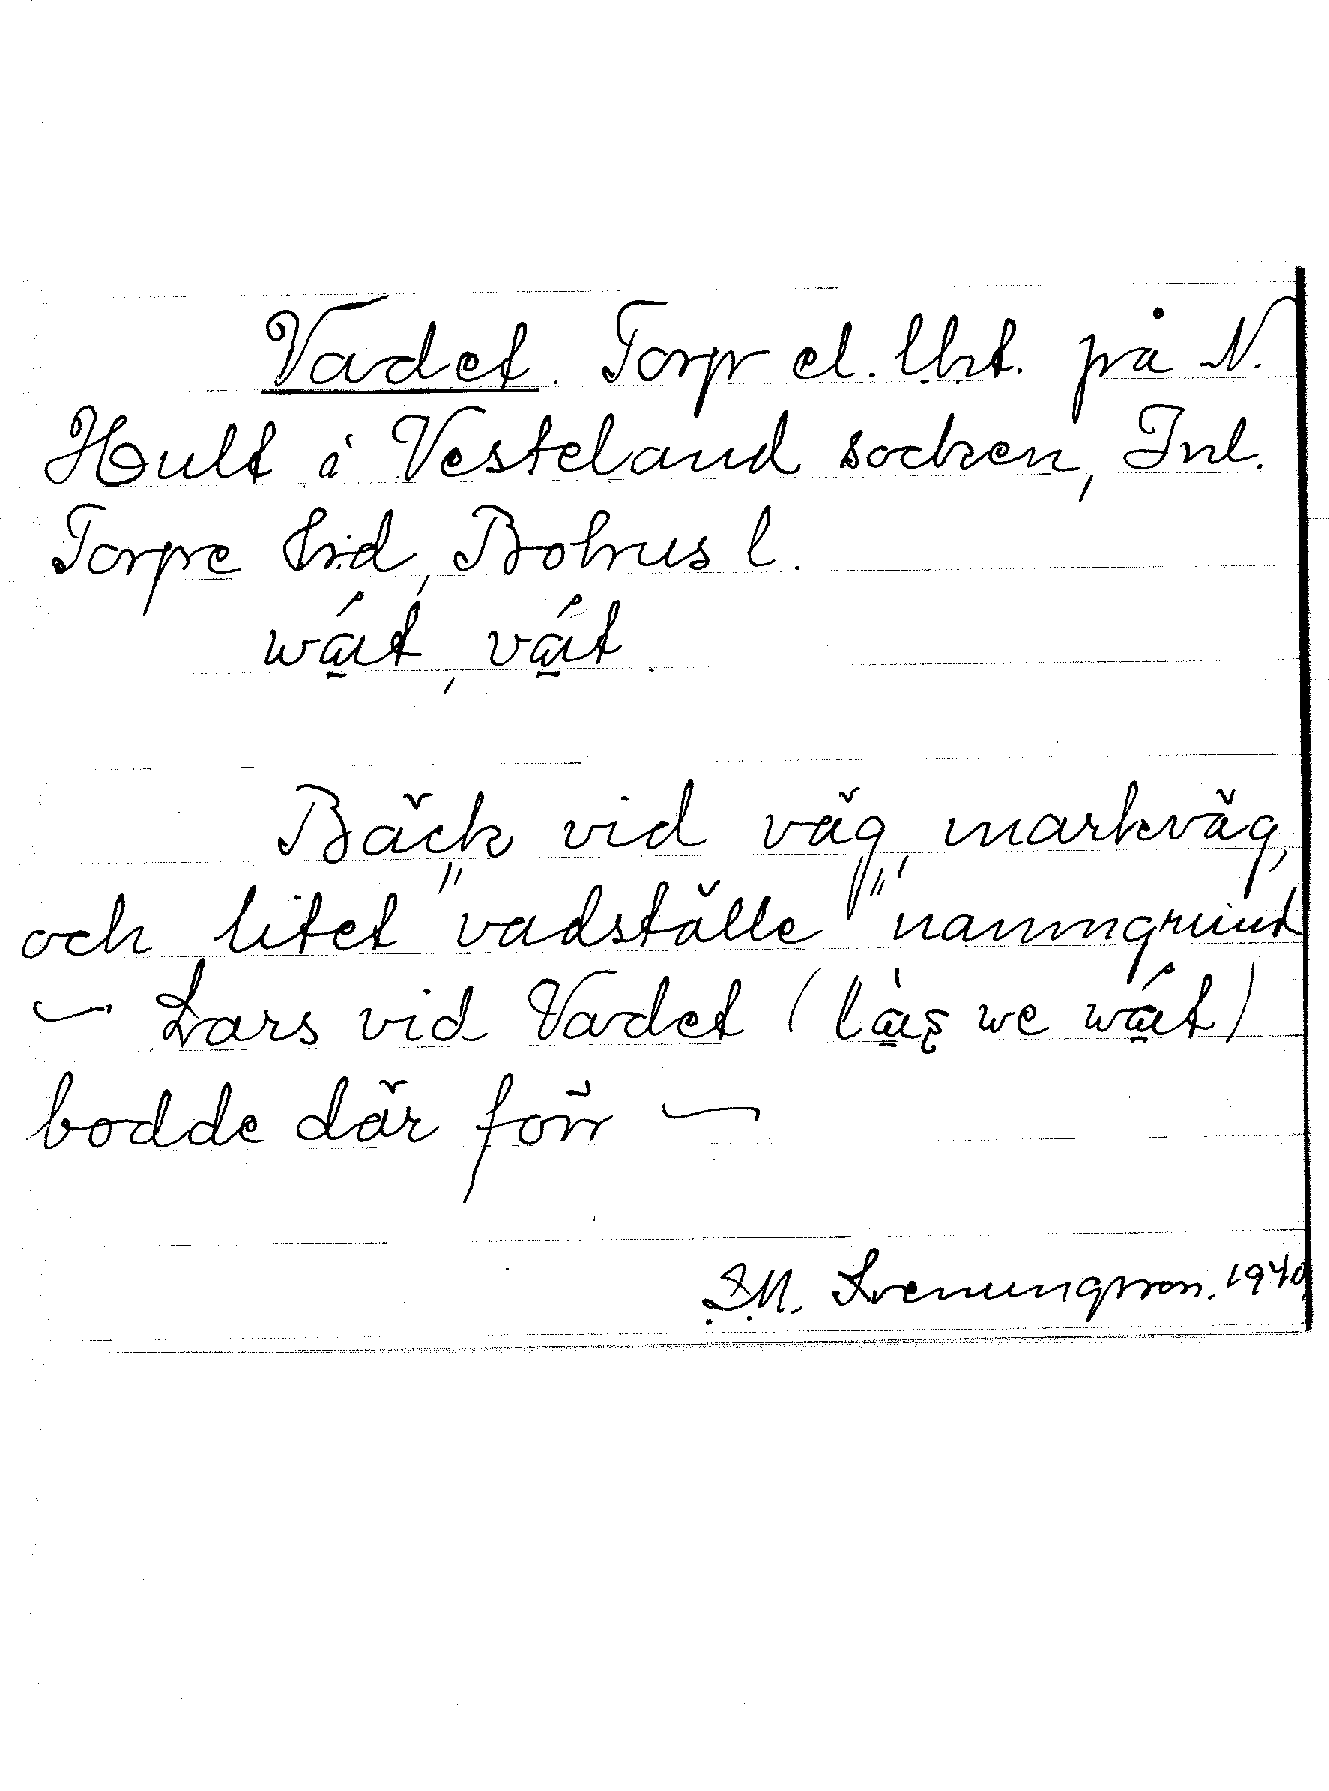 Vadet. Torp el. lht. på N.
Hult i Vesteland socken, Inl.
Torpe hd, Bohus l.
wát, vát.
Bäck vid väg, markväg,
och litet "vadställe" namngrunt
— Lars vid Vadet (là̱s we wá̱t)
bodde där förr —
Lvenungsson. 1940.